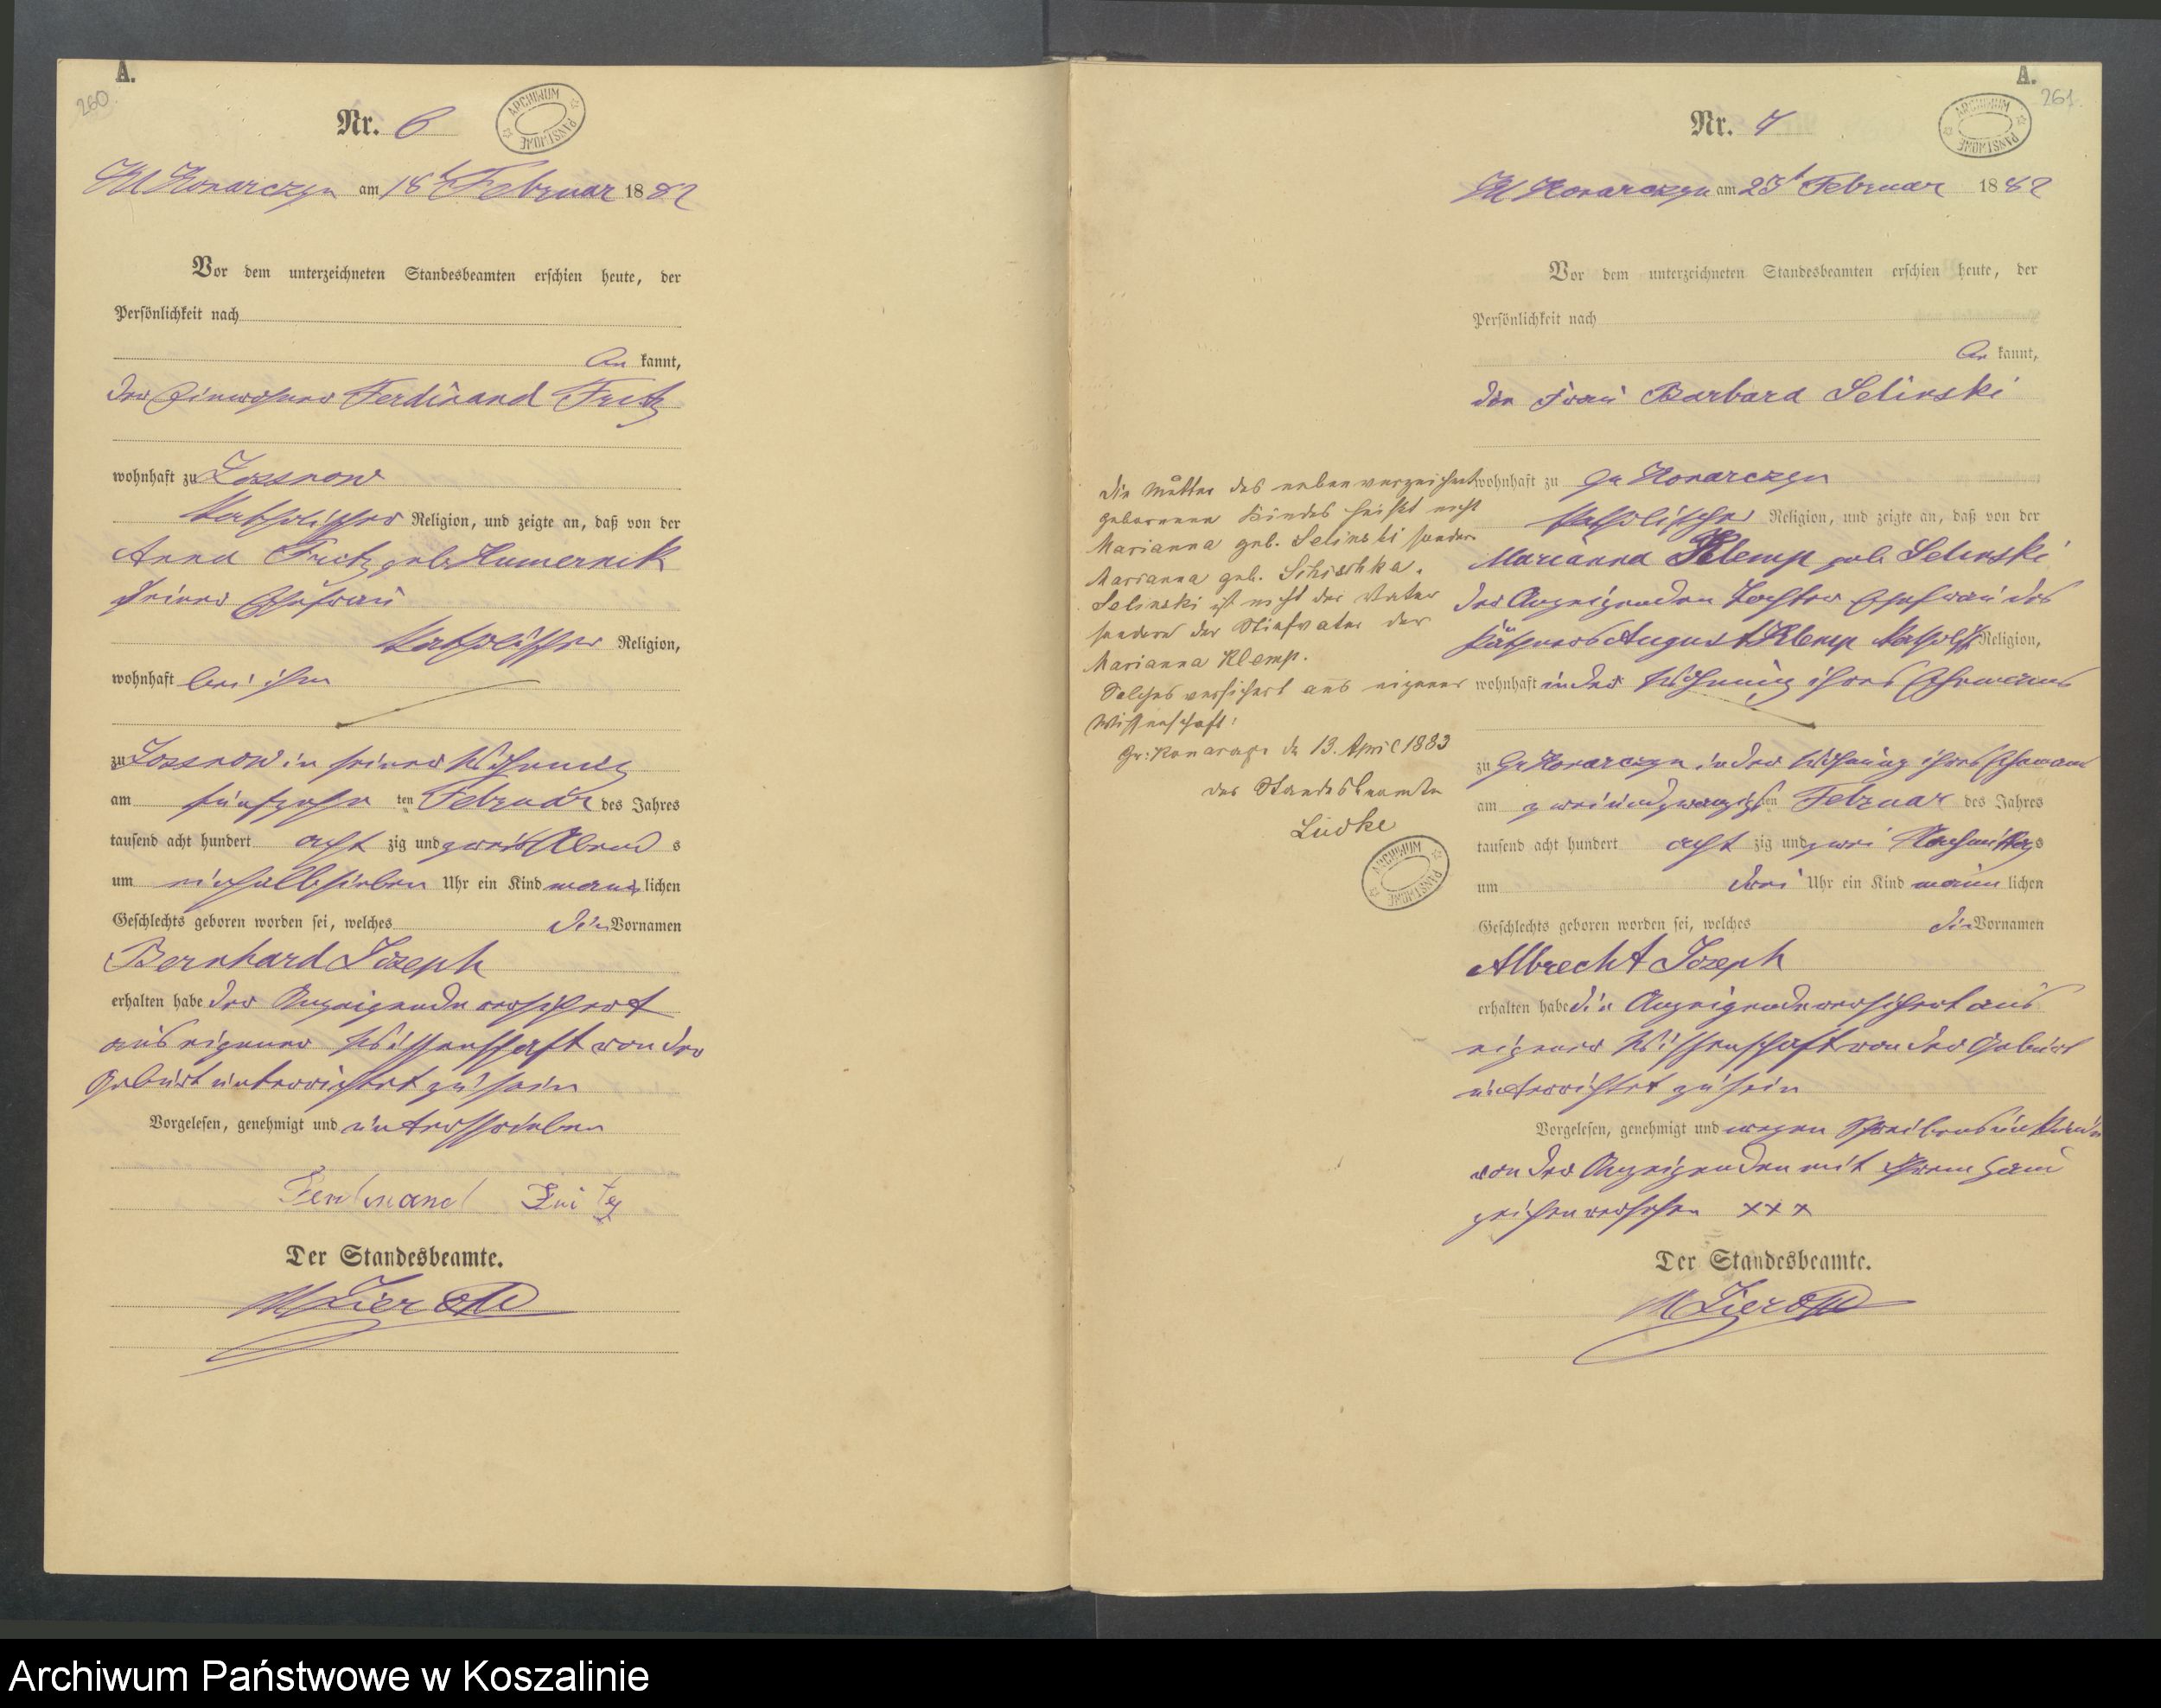 A.
260
Nr. 6
ARCHIWUM PAŃSTWOWE
Kl Konarczyn am 18t Februar 1882
Vor dem unterzeichneten Standesbeamten erschien heute, der
Persönlichkeit nach
kannt,
der Einwohner Ferdinand Fritz
wohnhaft zu Lossnow
katholischer Religion, und zeigte an, daß von der
Anna Fritz geb. Kumernik
seiner Ehefrau
katholischer Religion,
wohnhaft bei ihm
zu Lossnow in seiner Wohnung
am fünfzehn ten Februar des Jahres
tausend acht hundert acht zig und zwei Abend s
um einhalbsieben Uhr ein Kind männlichen
Geschlechts geboren worden sei, welches die Vornamen
Bernhard Joseph
erhalten habe der Anzeigende versichert
aus eigener Wissenschaft von der
Geburt unterrichtet zu sein
Vorgelesen, genehmigt und unterschrieben
Ferdinand Fritz
Der Standesbeamte.
A.
261
Nr. 7
ARCHIWUM PAŃSTWOWE
Kl Konarczyn am 23t Februar 1882
Vor dem unterzeichneten Standesbeamten erschien heute, der
Persönlichkeit nach
kannt,
die Frau Barbara Selinski
wohnhaft zu Gr Konarczyn
katholischer Religion, und zeigte an, daß von der
Marianna Klemp geb Selinski
der Anzeigenden Tochter Ehefrau des
Käthners August Klemp katholisch Religion,
wohnhaft in der Wohnung ihres Ehemanns
zu Gr Konarczyn in der Wohnung ihres Ehemann
am zweiundzwanzigsten Februar des Jahres
tausend acht hundert acht zig und zwei Nachmittags
um drei Uhr ein Kind männlichen
Geschlechts geboren worden sei, welches die Vornamen
Albrecht Joseph
erhalten habe die Anzeigende versichert aus
eigener Wissenschaft von der Geburt
unterrichtet zu sein
Vorgelesen, genehmigt und wegen Schreibensunkunde
von der Anzeigenden mit ihrem Hand
zeichen versehen xxx
Der Standesbeamte.
Die Mutter des nebenverzeichnet
geborenen Kindes heißt nicht
Marianna geb. Selinski sondern
Marianna geb. Schischka.
Selinski ist nicht der Vater
sondern der Stiefvater der
Marianna Klemp.
Solches versichert aus eigener
Wissenschaft:
Gr. Konarczyn d 13. April 1883
Der Standesbeamte
Lüdke
ARCHIWUM PAŃSTWOWE
Archiwum Państwowe w Koszalinie